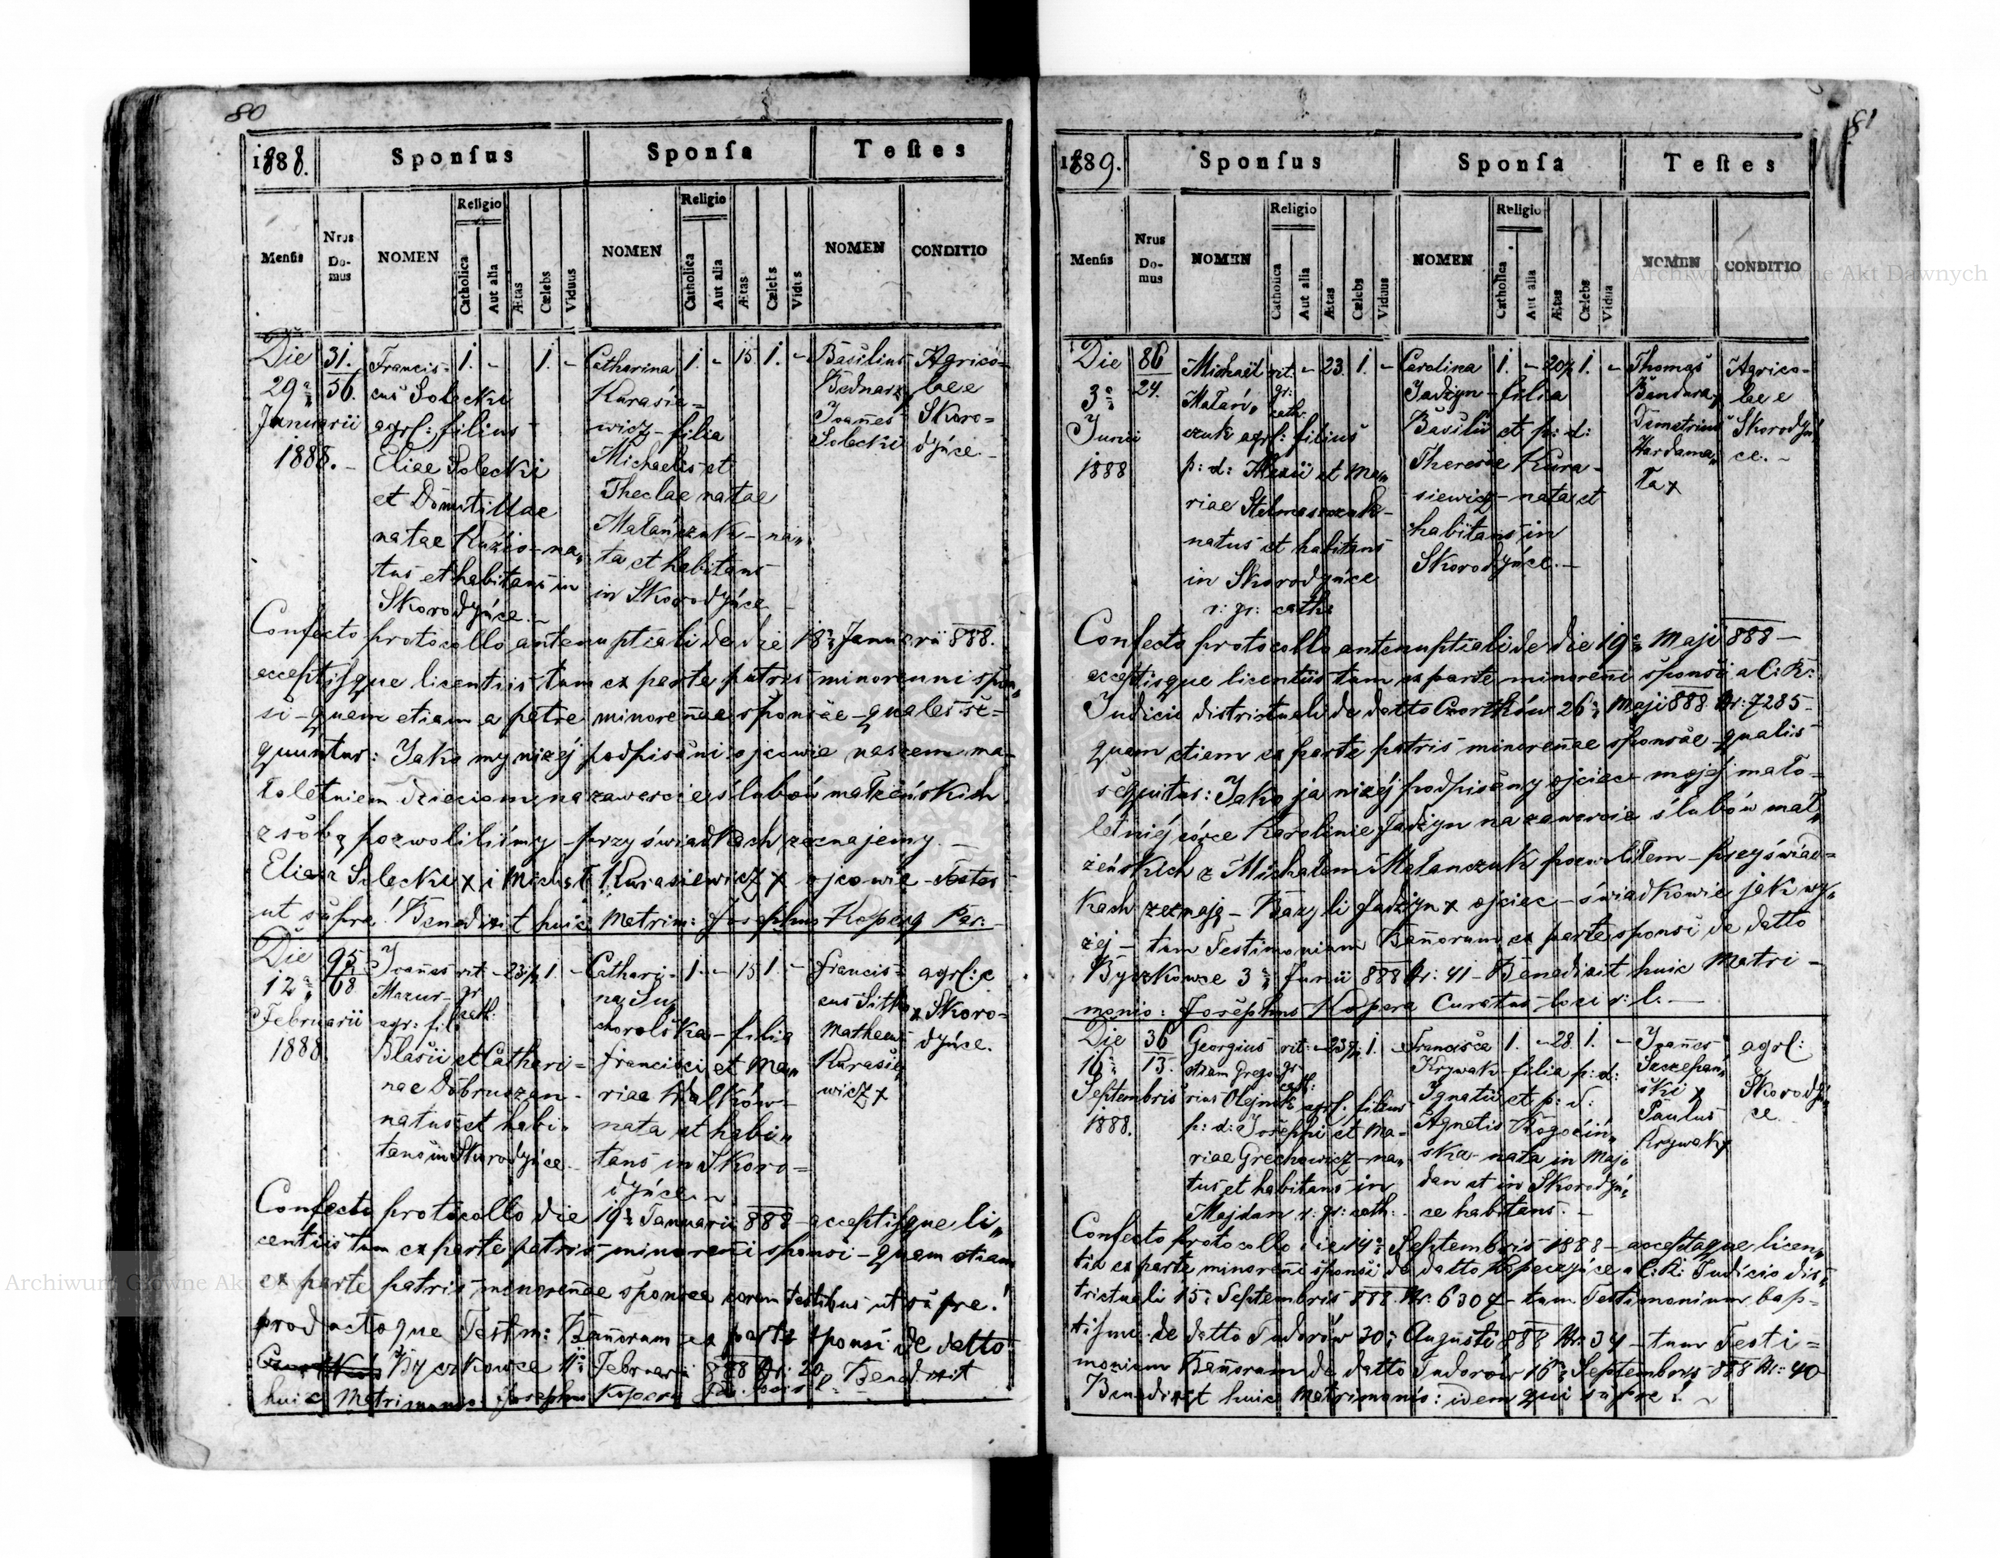 80
1888.
Sponsus
Sponsa
Testes
Mensis
Nrus Domus
NOMEN
Religio
Catholica
Aut alia
Ætas
Cælebs
Viduus
NOMEN
Religio
Catholica
Aut alia
Ætas
Cælebs
Vidua
NOMEN
CONDITIO
Die
29ª
Januarii
1888. –
31.
56.
Francis=
cus Solecki
agrl: filius
Eliae Solecki
et Domitillae
natae Kuzio – na„
tus et habitans in
Skorodyńce. ~
1. – 1. –
Catharina
Kurasie=
wicz – filia
Michaelis et
Theclae natae
Matańczuk – na„
ta et habitans
in Skorodyńce
1 – 15. 1. –
Basilius
Bednarz
Joannes
Solecki
Agrico=
lae e
Skoro=
dyńce. –
Confecto protocollo antenuptiali de die 18ª Januarii 888.
acceptisque licentiis tam ex parte patris minorenni spon„
si – quam etiam a patre minorennae sponsae – quales se=
quuntur: Jako my niżej podpisani ojcowie naszem ma=
łoletniem dzieciom na zawarcie ślubów małżeńskich
z sobą pozwoliliśmy – przy świadkach zeznajemy. –
Eliasz Solecki x i Michał Kurasiewicz x ojcowie – Testes
ut supra! Benedixit huic Matrim: Josephus Kopera Par: –
Die
12ª
Februarii
1888.
95
68.
Joannes
Mazur –
agr: fil:
Blasii et Catheri=
nae Dobruszan –
natus et habi„
tans in Skorodyńce –
rit. gr. cath: – 23½ 1. –
Cathari=
na Su
chorolska – filia
Francisci et Ma„
riae Walków –
nata et habi„
tans in Skoro=
dyńce. ~
1. – 15 1. –
Francis=
cus Sitko x
Matheus
Kurasie„
wicz x
agrl: e
Skoro=
dyńce.
Confecto protocollo die 19ª Januarii 888 – acceptisque li„
centiis tam ex parte patris minorenni sponsi – quam etiam
ex parte patris minorennae sponsae coram testibus ut supra!
productoque Testm: Bannorum ex parte sponsi de datto
Byczkowce 11ª Februarii 888 Nr: 20. – Benedixit
huic Matrimonio: Josephus Kopera Par. loci r. l.
81
1889.
Sponsus
Sponsa
Testes
Mensis
Nrus Domus
NOMEN
Religio
Catholica
Aut alia
Ætas
Cælebs
Viduus
NOMEN
Religio
Catholica
Aut alia
Ætas
Cælebs
Vidua
NOMEN
CONDITIO
Die
3ª
Junii
1888
86
24.
Michaël
Matań„
czuk agrl: filius
p: d: Alexii et Ma„
riae Stelmaszczuk –
natus et habitans
in Skorodyńce
r: gr: cath:
rit. gr: cath: – 23. 1. –
Carolina
Jadzyn – filia
Basilii et p: d:
Theresiae Kura=
siewicz – nata et
habitans in
Skorodyńce. –
1. – 20½ 1. –
Thomas
Bandura x
Demetrius
Hardama„
ta x
Agrico=
lae e
Skorodyń„
ce. –
Confecto protocollo antenuptiali de die 19ª Maji 888 –
acceptisque licentiis tam ex parte minorenni sponsi a C: K:
Judicio districtuali de datto Czortków 26ª Maji 888 Nr: 7285 –
quam etiam ex parte patris minorennae sponsae – qualis
sequitur: Jako ja niżej podpisany ojciec mojej mało=
letniej córce Karolinie Jadzyn na zawarcie ślubów mał„
żeńskich z Michałem Matanczuk pozwoliłem – przy świad=
kach zeznaję – Bazyli Jadzyn x ojciec – świadkowie jak wy„
żej – tum Testimonium Bannorum ex parte sponsi de datto
Byczkowce 3ª Junii 888 Nr: 41 – Benedixit huic Matri –
monio: Josephus Kopera Curatus loci r: l. –
Die
16ª
Septembris
1888.
36
13.
Georgius
etiam Grego
rius Olejnik agrl. filius
p: d: Josephi et Ma=
riae Grechowicz – na„
tus et habitans in
Majdan r: gr: cath:
rit: gr. cath: – 23½ 1. –
Francisca
Krywak – filia p: d:
Ignatii et p: d:
Agnetis Rogoziń„
ska – nata in Maj„
dan et in Skorodyń„
ce habitans. –
1. – 28. 1. –
Joannes
Szczepań„
ski x
Paulus
Krywak x
agrl:
Skorodyń„
ce.
Confecto protocollo die 14ª Septembris 1888 – acceptaque licen„
tia ex parte minorenni sponsi de datto Kopeczyńce a C: K: Judicio dis„
trictuali 15ª Septembris 888 Nr. 6307 – tum Testimonium bap=
tismi de datto Tudorów 30ª Augusti 888 Nr. 34 – tum Testi=
monium Bannorum de datto Tudorów 16ª Septembris 888 Nr: 40
Benedixit huic Matrimonio: idem qui supra! ~
Archiwum Główne Akt Dawnych
Archiwum Główne Akt Dawnych